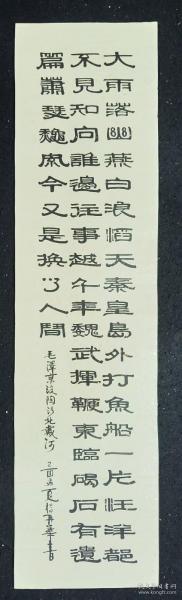 大雨落幽燕白浪滔天秦皇島外打魚船一片汪洋都
不見知向誰邊往事越千年魏武揮鞭東臨碣石有遺
篇蕭瑟秋風今又是換了人間
毛澤東浪陶沙北戴河